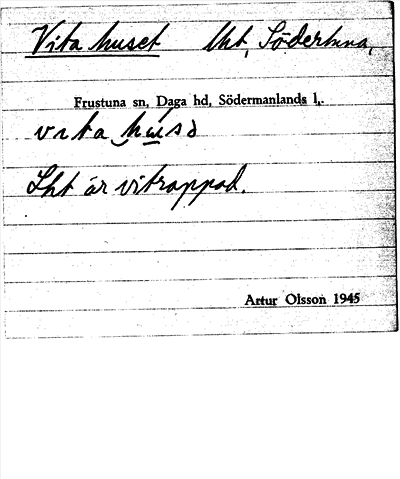 Vita huset lht, Södertuna,
Frustuna sn, Daga hd, Södermanlands l.
vita húsə
Lht är vitrappad.
Artur Olsson 1945